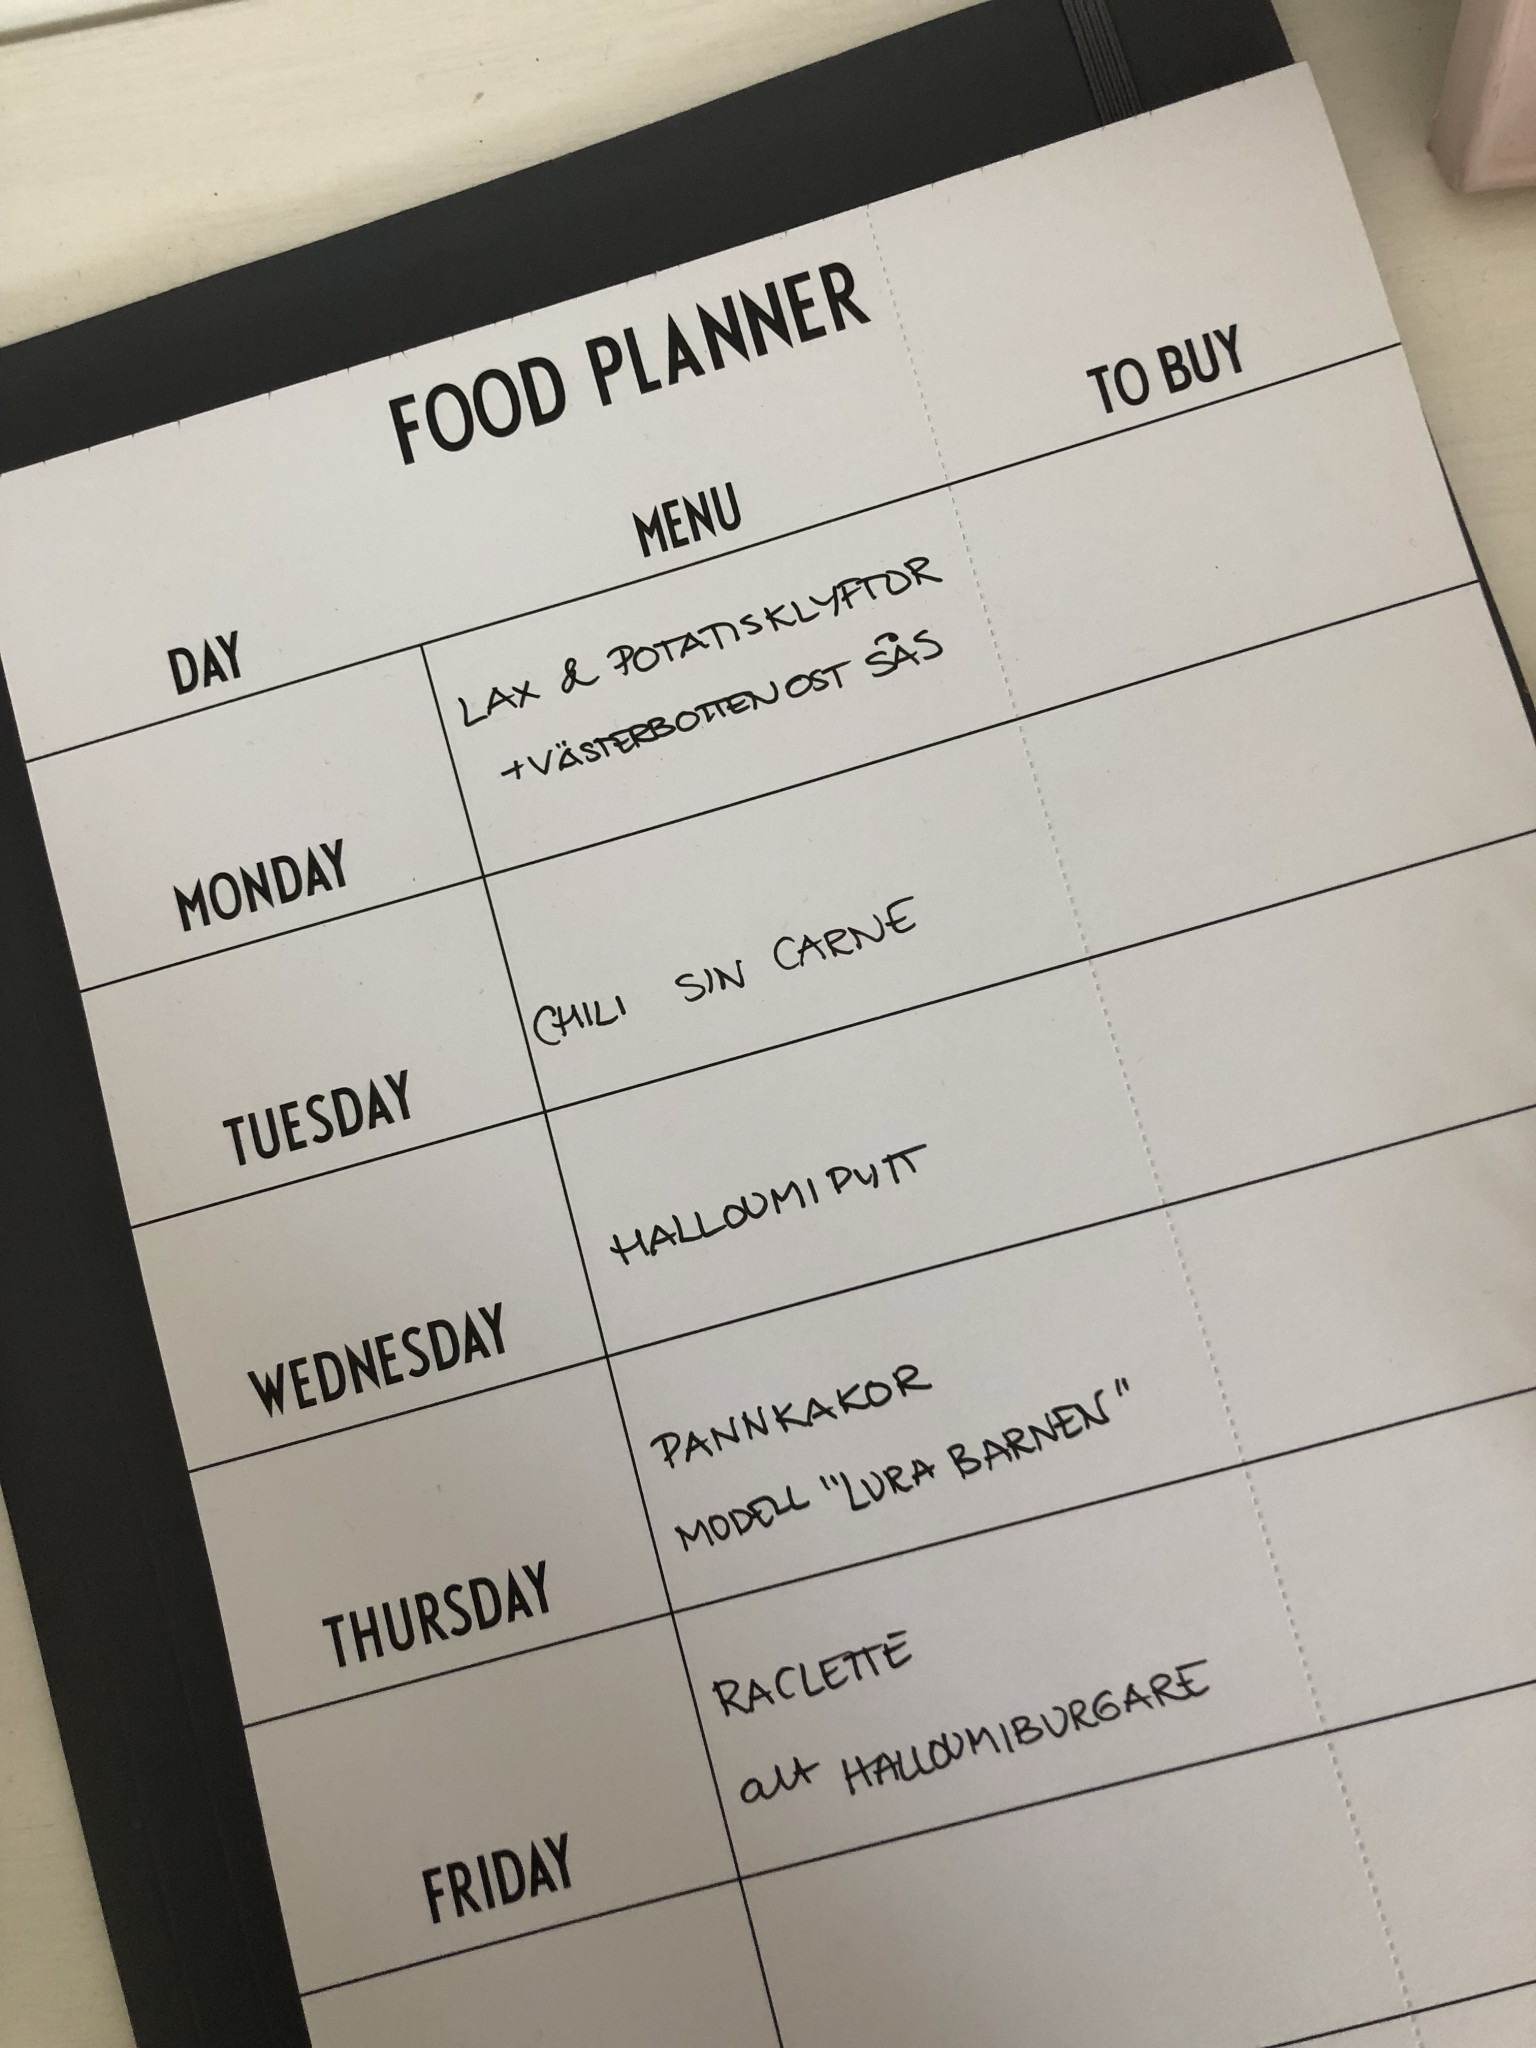 FOOD PLANNER
DAY MENU TO BUY
LAX & POTATISKLYFTOR
+VÄSTERBOTTENOST SÅS
MONDAY
CHILI SIN CARNE
TUESDAY
HALLOUMIPYTT
WEDNESDAY
PANNKAKOR
MODELL "LURA BARNEN"
THURSDAY
RACLETTE
alt HALLOUMIBURGARE
FRIDAY